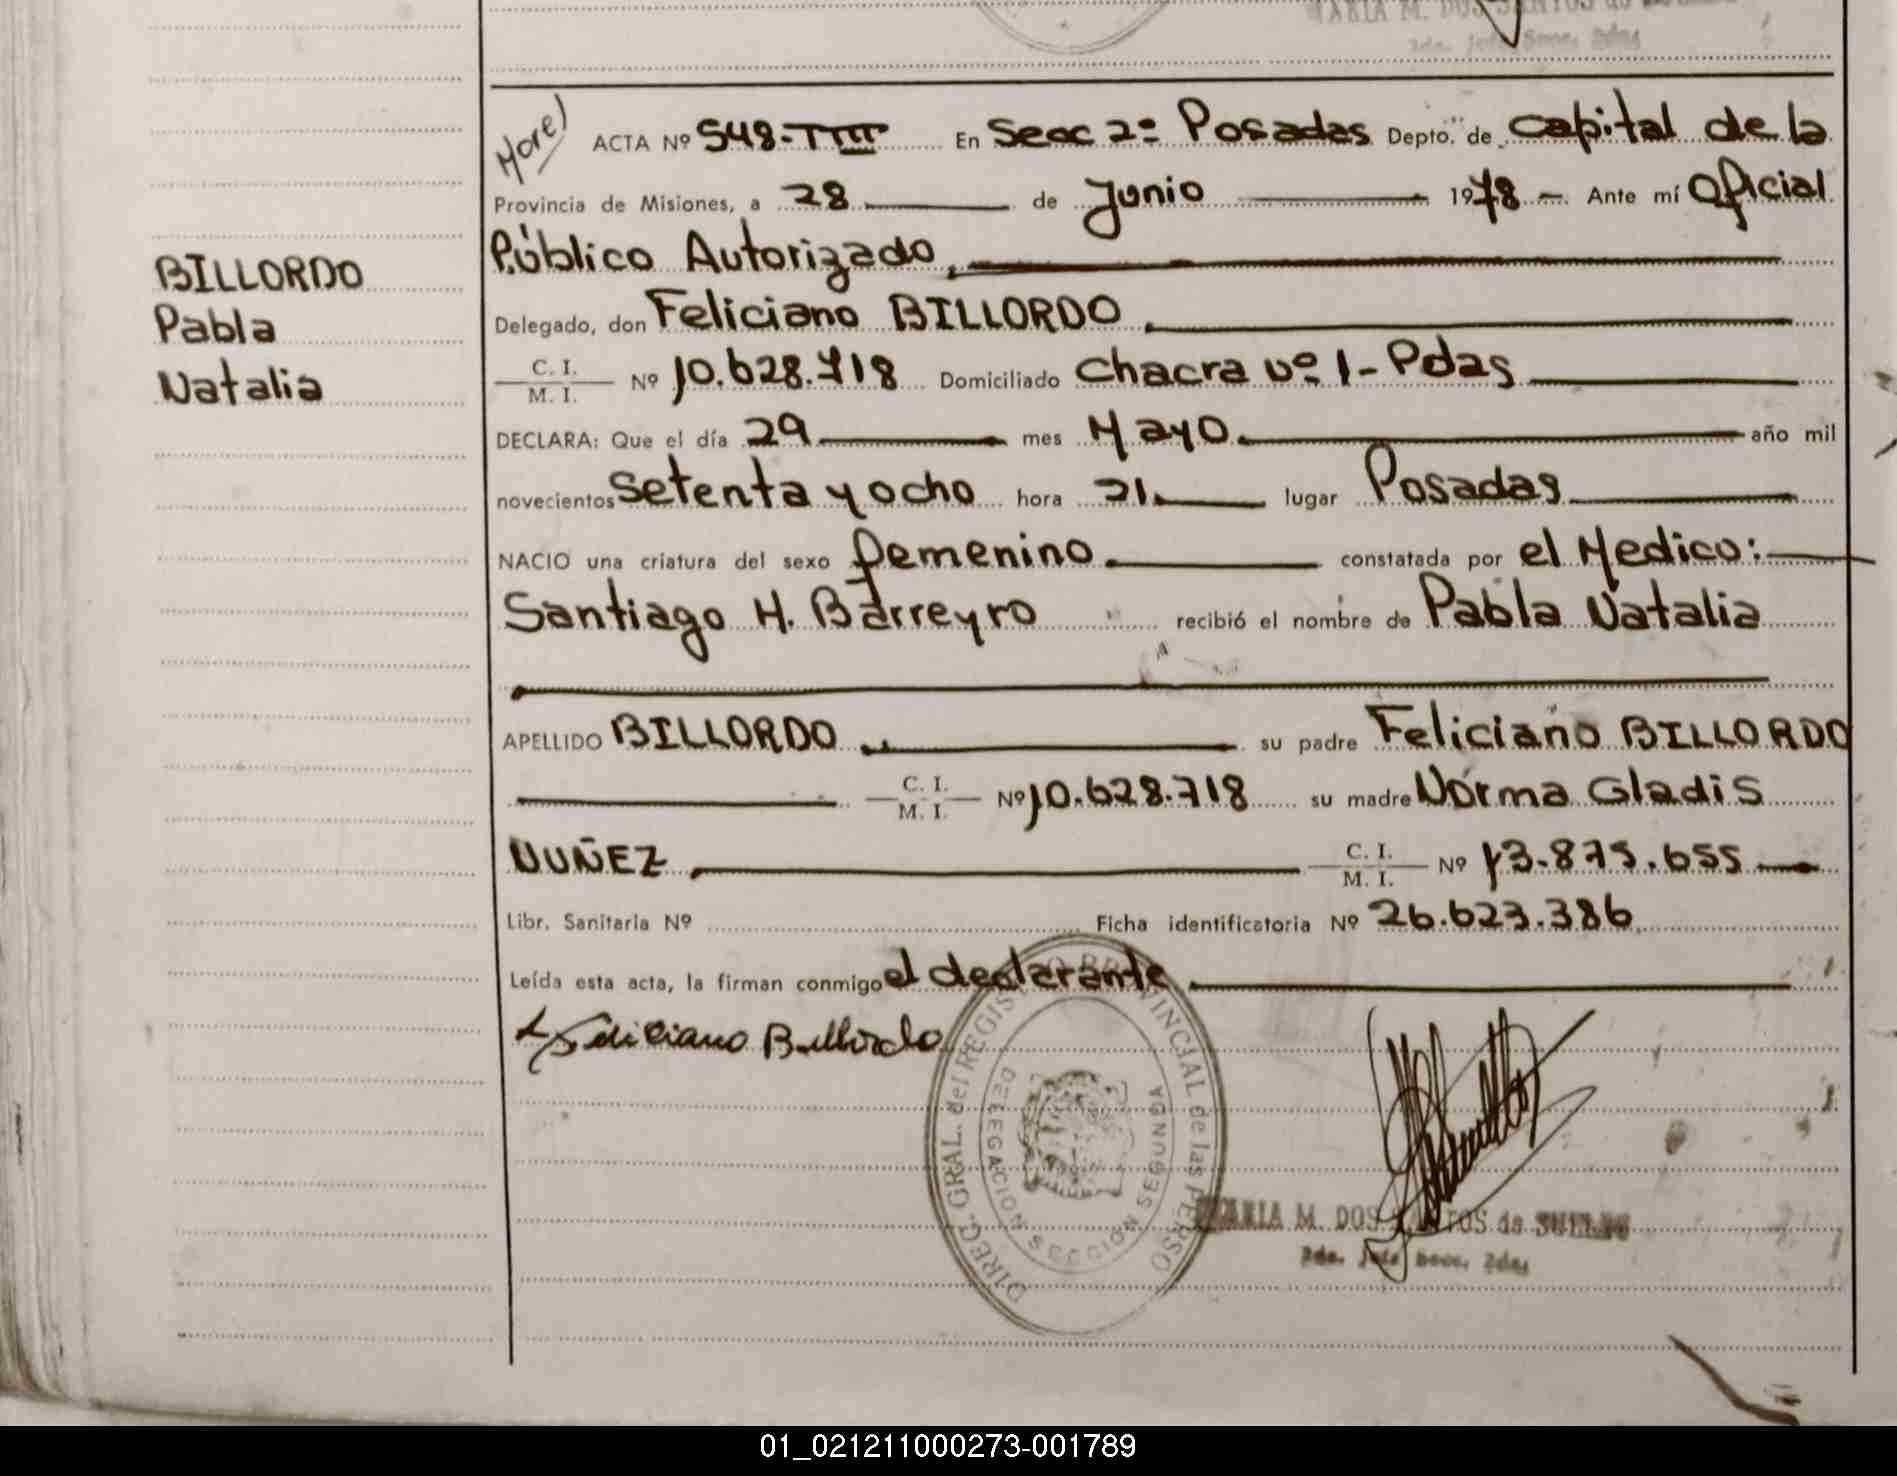 MARIA M. DOS SANTOS de
2da. Jefe Secc. 2das
More)
ACTA Nº 548-TIII En Secc 2º Posadas Depto. de Capital de la
Provincia de Misiones, a 28 de Junio 1978 - Ante mí Oficial
Público Autorizado,
BILLORDO
Pabla
Natalia
Delegado, don Feliciano BILLORDO
C. I.
M. I. Nº 10.628.718 Domiciliado Chacra nº 1 - Pdas
DECLARA: Que el día 29 mes Mayo año mil
novecientos setenta y ocho hora 21 lugar Posadas
NACIO una criatura del sexo femenino constatada por el Medico:
Santiago H. Barreyro recibió el nombre de Pabla Natalia
APELLIDO BILLORDO su padre Feliciano BILLORDO
C. I.
M. I. Nº 10.628.718 su madre Norma Gladis
NUÑEZ C. I.
M. I. Nº 13.875.655
Libr. Sanitaria Nº Ficha identificatoria Nº 26.623.386
Leída esta acta, la firman conmigo el declarante
Feliciano Billordo
DIREC. GRAL. del REGISTRO PROVINCIAL de las PERSO
DELEGACION SECCION SEGUNDA
MARIA M. DOS SANTOS de
2da. Jefe Secc. 2das
01_021211000273-001789